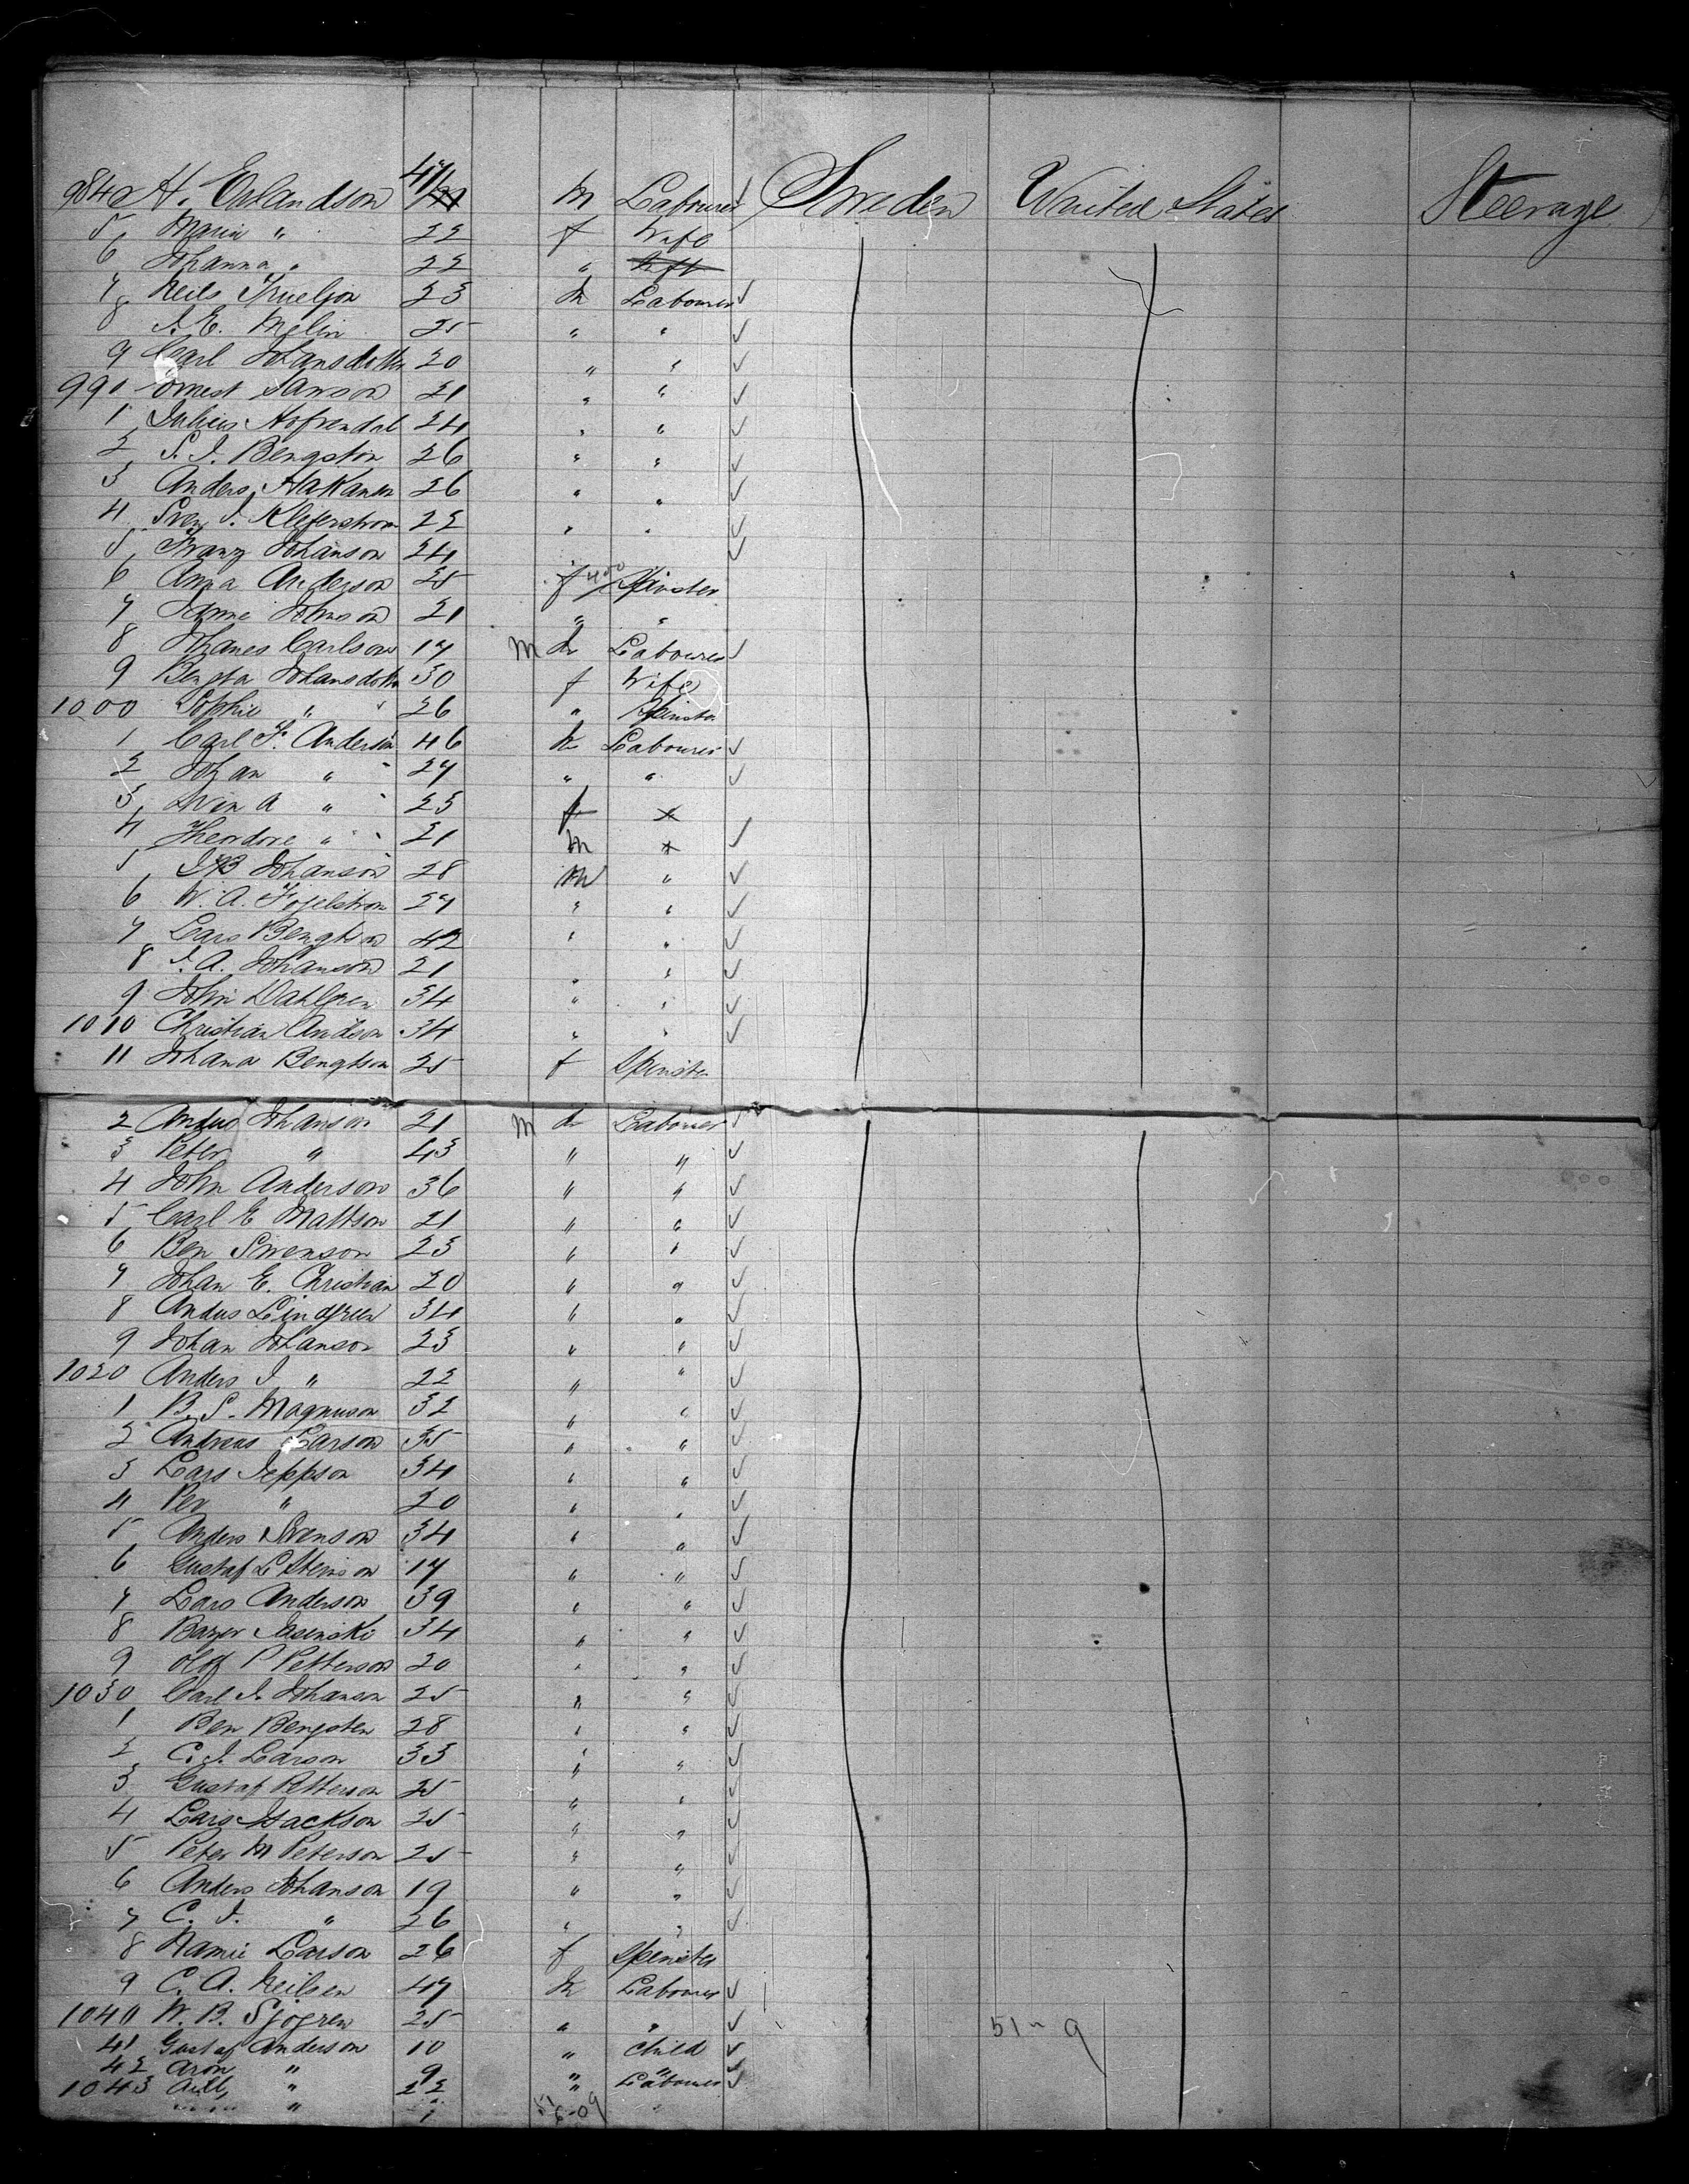 984 H. Erlandson 47 m Labourer ✓ Sweden United States Steerage
5 Maria " 22 f Wife
6 Johanna " 22 "
7 Neils Truelson 23 m Labourer ✓
8 J. E. Melin 25 " " ✓
9 Carl Johansdotter 20 " " ✓
990 Ernest 21 " " ✓
1 Julius 24 " " ✓
2 S. J. Bengston 26 " " ✓
3 Anders Hakanson 26 " " ✓
4 Sven J. 22 " " ✓
5 Franz Johanson 24 ✓
6 Anna Anderson 25 f Spinster
7 Johnson 21 " "
8 Johanes Carlson 17 m Labourer ✓
9 Bengta Johansdotter 30 f Wife
1000 Sophie " 26 " Spinster
1 Carl F. Anderson 46 m Labourer ✓
2 Johan " 27 " " ✓
3 A " 23
4 Theodore " 21 m ✓
5 Johanson 28 m " ✓
6 W. A. Fogelstrom 27 " " ✓
7 Lars Bengtson 42 " " ✓
8 J. A. Johanson 21 " " ✓
9 John Dahlgren 34 " " ✓
1010 Christian Andson 34 " " ✓
11 Johana Bengtson 25 f Spinster
2 Andrs Johanson 21 m Labourer ✓
3 Peter " 43 " " ✓
4 John Anderson 36 " " ✓
5 Carl E Mattson 21 " " ✓
6 Ben Swenson 23 " " ✓
7 Johan E. Christian 20 " " ✓
8 Andus Lindgren 34 " " ✓
9 Johan Johanson 23 " " ✓
1020 Anders J " 22 " " ✓
1 B. S. Magnuson 32 " " ✓
2 Andreas Larson 35 " " ✓
3 Lars Jeppson 34 " " ✓
4 Per " 20 " " ✓
5 Anders Svenson 34 " " ✓
6 Gustaf L 17 " " ✓
7 Lars Anderson 39 " " ✓
8 34 " " ✓
9 Olof P Petterson 20 " " ✓
1030 Carl J. Johanson 25 " " ✓
1 Ben Bengsten 28 " " ✓
2 C. J. Larson 33 " " ✓
3 Gustaf Petterson 25 " " ✓
4 Lars Isackson 25 " " ✓
5 Peter M Peterson 25 " " ✓
6 Anders Johanson 19 " " ✓
7 C. J. " 26 " " ✓
8 Larson 26 f Spinster
9 C. A. Neilsen 47 m Labourer ✓
1040 W. B. Sjogren 25 " " ✓ 51 9
41 Gustaf Anderson 10 " Child ✓
42 Aron " 9 " " ✓
1043 " 22 " Labourer ✓